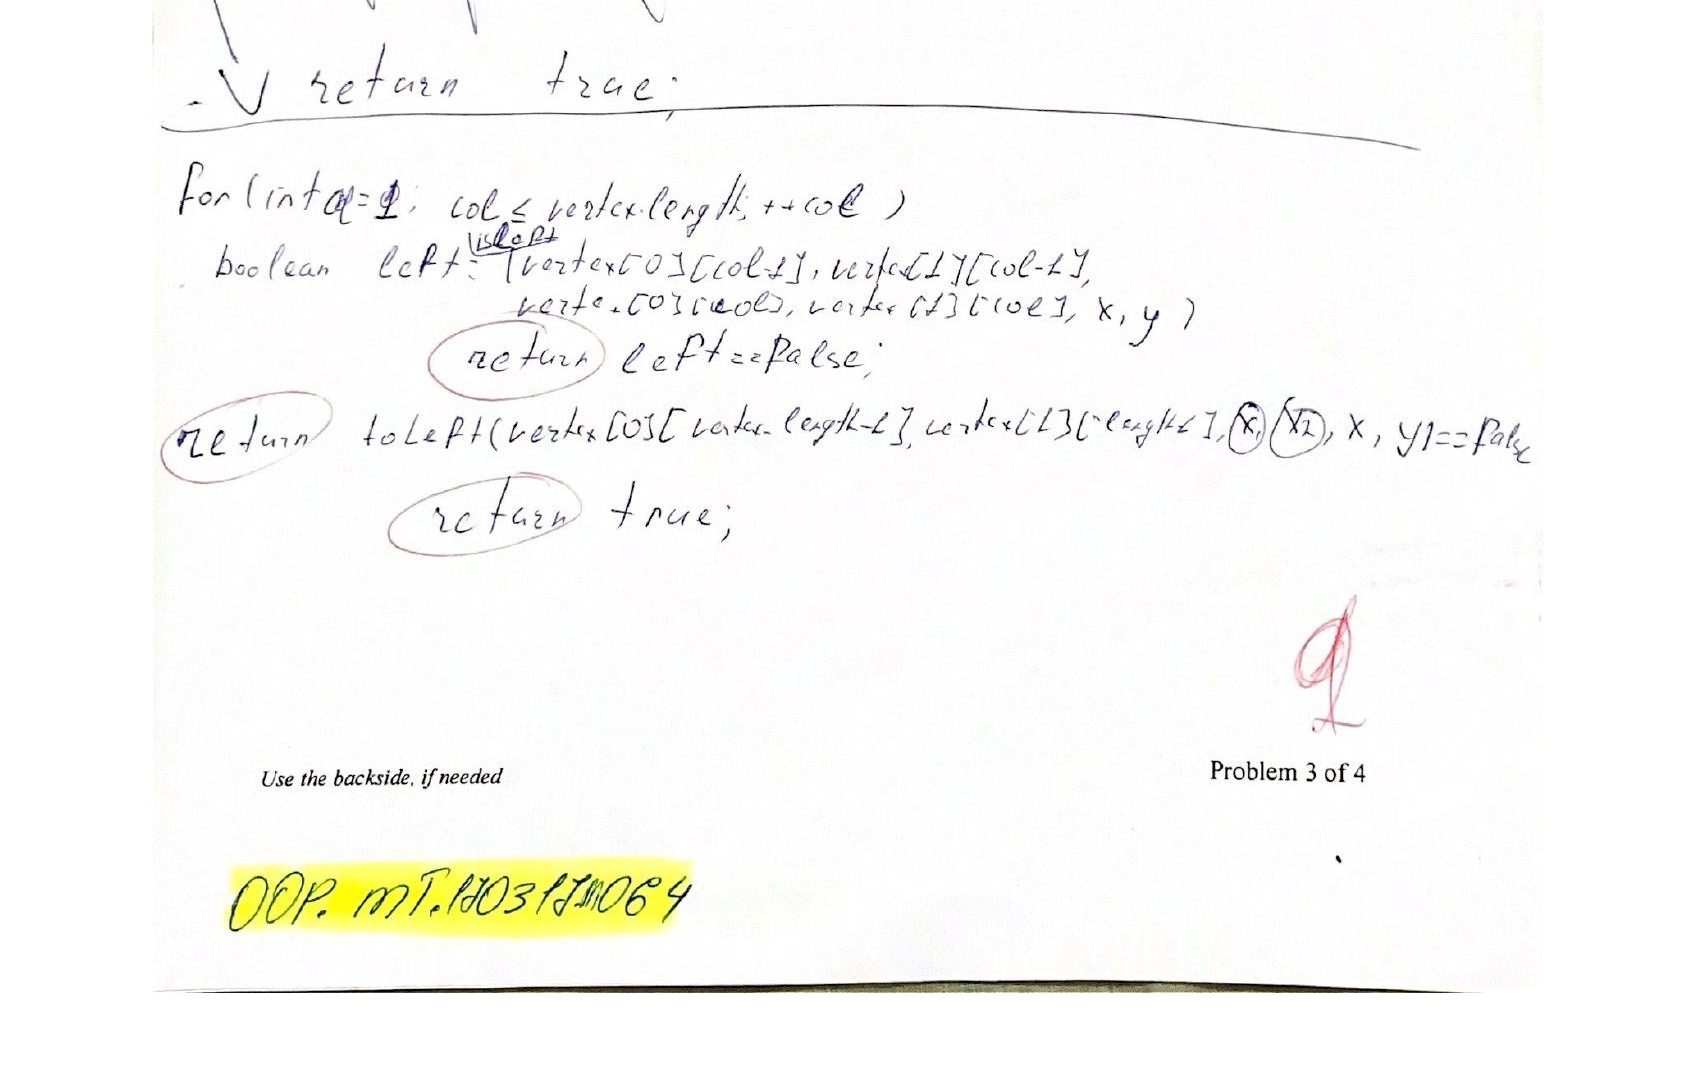 return true;
for (int col=1; col ≤ vertex.length; ++col )
isLeft
boolean left = (vertex[0][col-1], vertex[1][col-1],
vertex[0][col], vertex[1][col], x, y )
return left==false;
return toLeft(vertex[0][vertex.length-1], vertex[1][length-1], x, y)==false
return true;
9
Use the backside, if needed
Problem 3 of 4
OOP. MT.